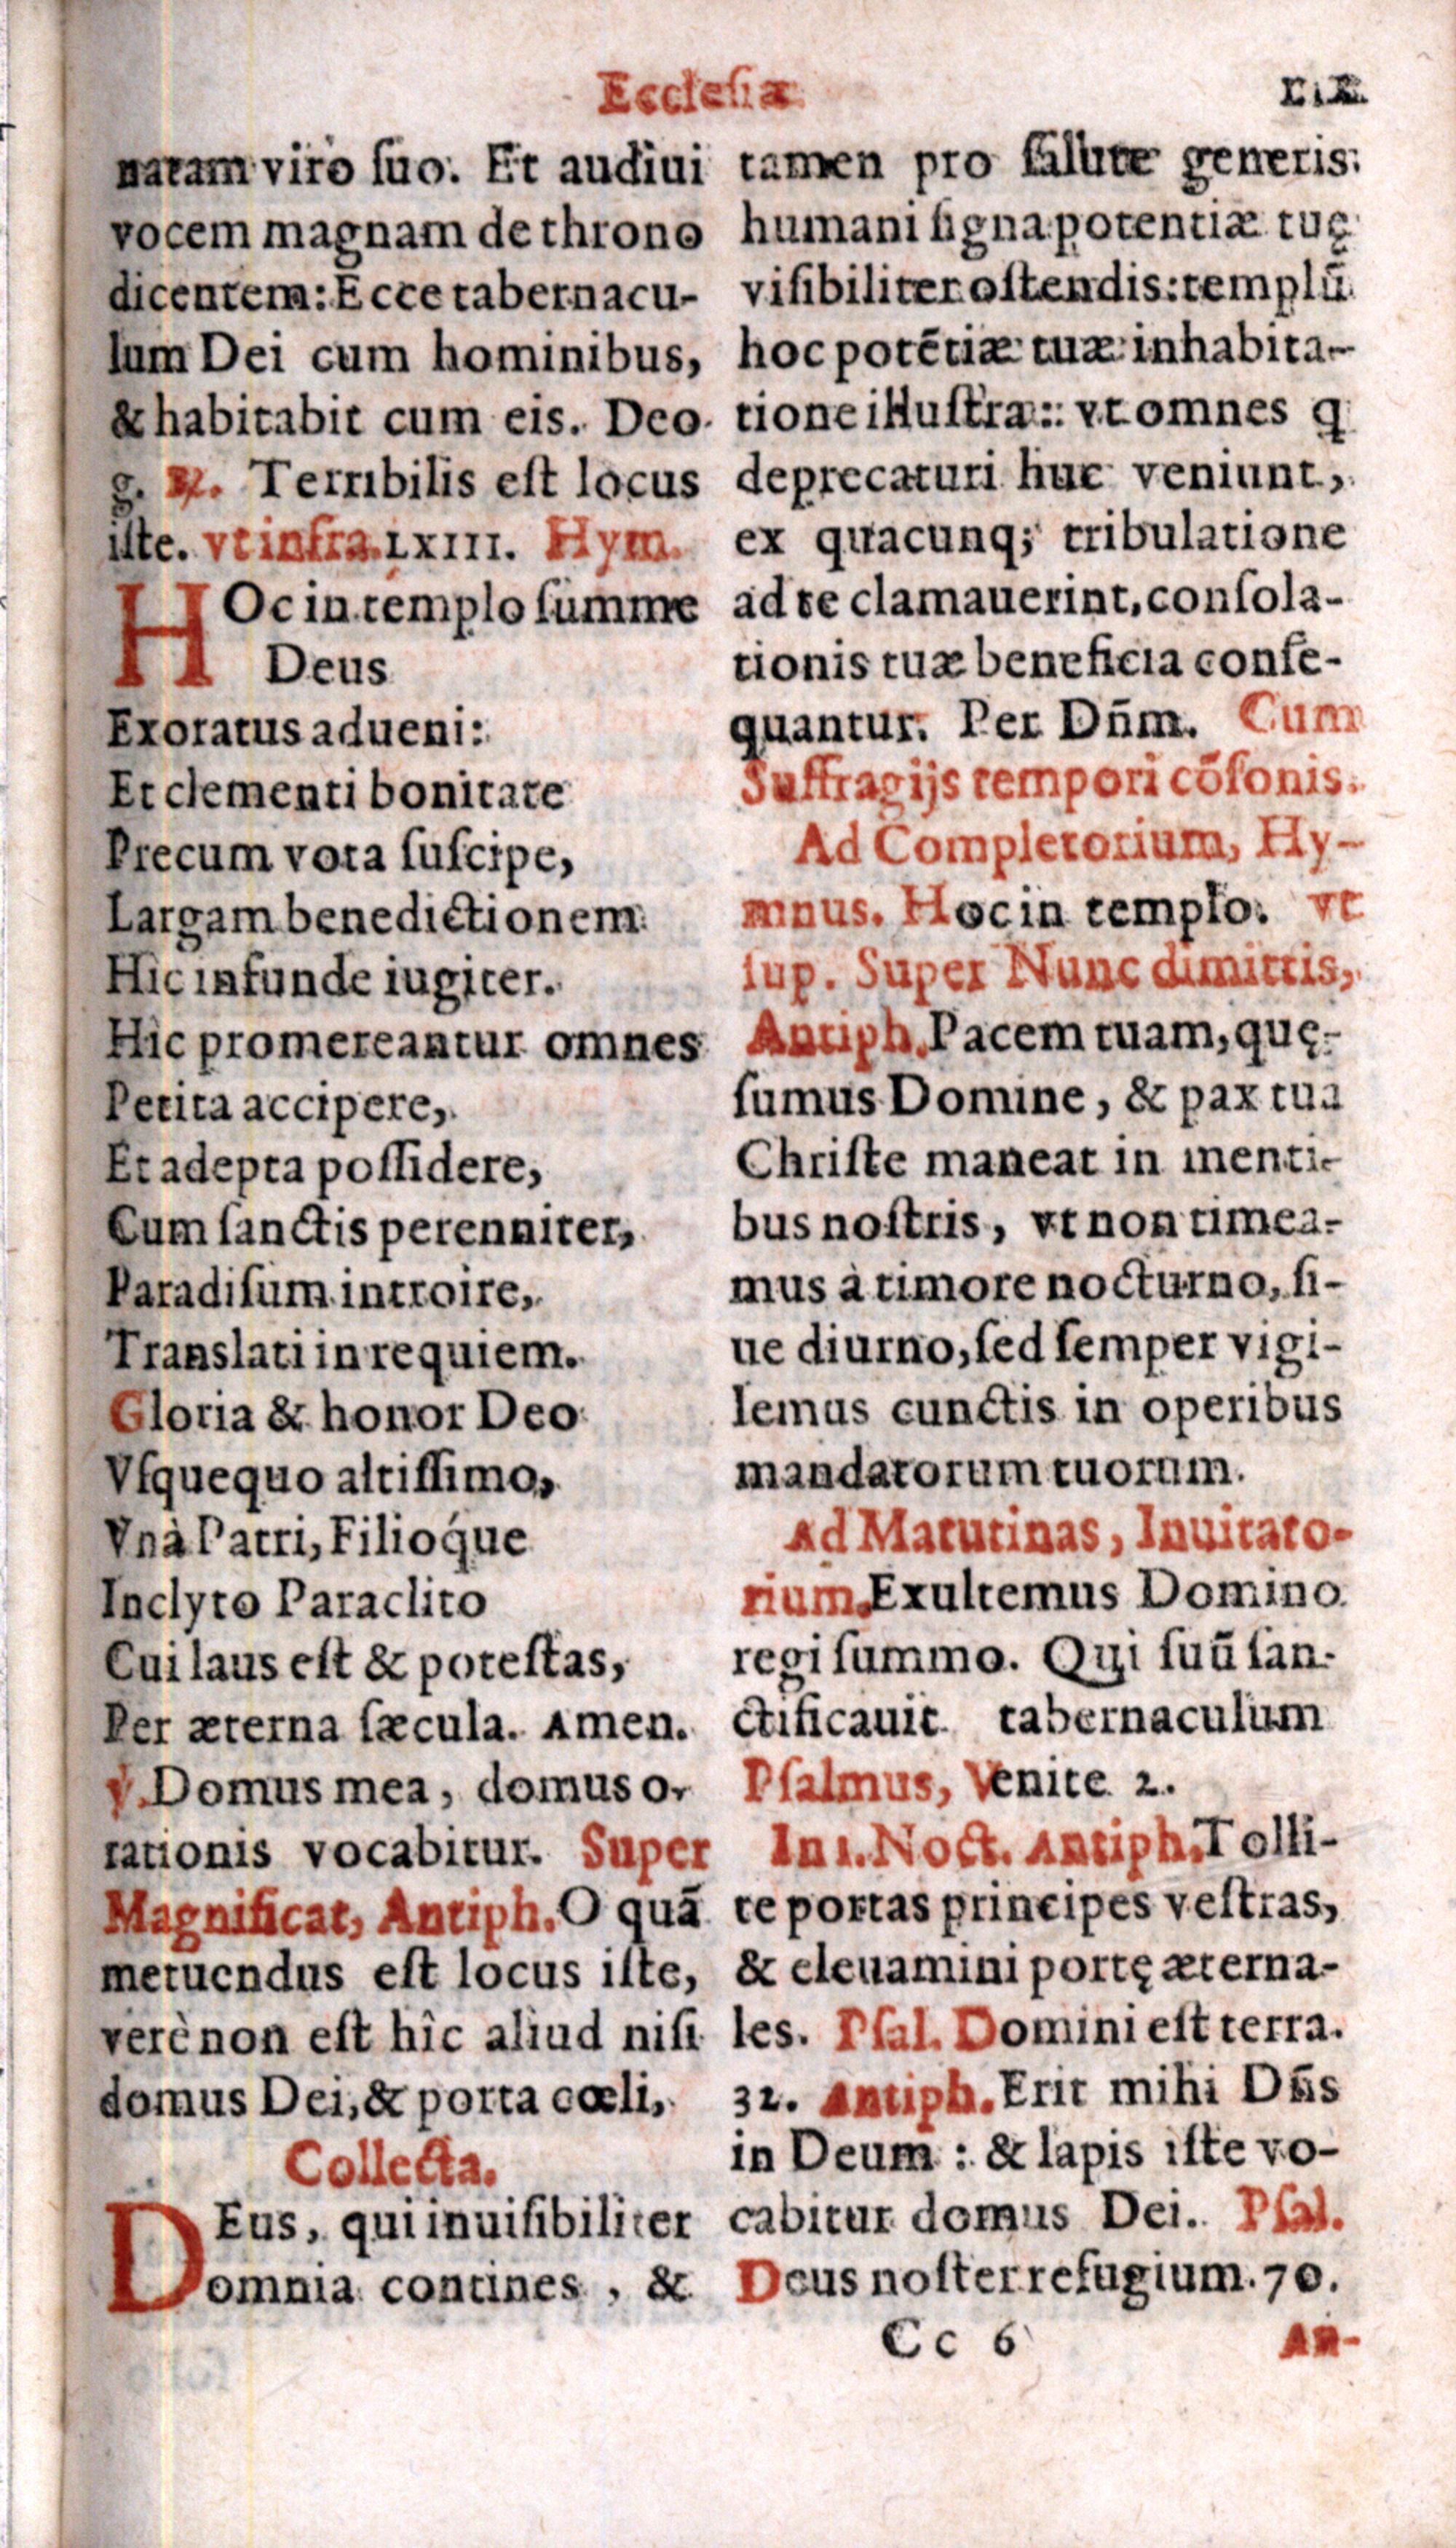 Ecclesiæ
natam viro ſuo. Et audiui
vocem magnam de throno
dicentem: Ecce tabernacu-
lum Dei cum hominibus,
& habitabit cum eis. Deo
g. ℟. Terribilis eſt locus
iſte. vt infra. LXIII. Hym.
HOc in templo ſumme
Deus
Exoratus adueni:
Et clementi bonitate
Precum vota ſuſcipe,
Largam benedictionem
Hic infunde iugiter.
Hic promereantur omnes
Petita accipere,
Et adepta poſſidere,
Cum ſanctis perenniter,
Paradiſum introire,
Translati in requiem.
Gloria & honor Deo
Vſquequo altiſſimo,
Vnà Patri, Filioq́ue
Inclyto Paraclito
Cui laus eſt & poteſtas,
Per æterna ſæcula. Amen.
℣. Domus mea, domus o-
rationis vocabitur. Super
Magnificat, Antiph. O quã
metuendus eſt locus iſte,
verè non eſt hîc aliud niſi
domus Dei, & porta cœli,
Collecta.
DEus, qui inuiſibiliter
omnia contines, &
tamen pro ſalute generis
humani ſigna potentiæ tuę
viſibiliter oſtendis: templũ
hoc potẽtiæ tuæ inhabita-
tione illuſtra: vt omnes q
deprecaturi huc veniunt,
ex quacunq; tribulatione
ad te clamauerint, conſola-
tionis tuæ beneficia conſe-
quantur. Per Dñm. Cum
Suffragijs tempori cõſonis.
Ad Completorium, Hy-
mnus. Hoc in templo. vt
ſup. Super Nunc dimittis,
Antiph. Pacem tuam, quę-
ſumus Domine, & pax tua
Chriſte maneat in menti-
bus noſtris, vt non timea-
mus à timore nocturno, ſi-
ue diurno, ſed ſemper vigi-
lemus cunctis in operibus
mandatorum tuorum.
Ad Matutinas, Inuitato-
rium. Exultemus Domino
regi ſummo. Qui ſuũ ſan-
ctificauit tabernaculum
Pſalmus, Venite 2.
In 1. Noct. Antiph. Tolli-
te portas principes veſtras,
& eleuamini portę æterna-
les. Pſal. Domini eſt terra.
32. Antiph. Erit mihi Dñs
in Deum: & lapis iſte vo-
cabitur domus Dei. Pſal.
Deus noſter refugium. 70.
Cc 6 An-